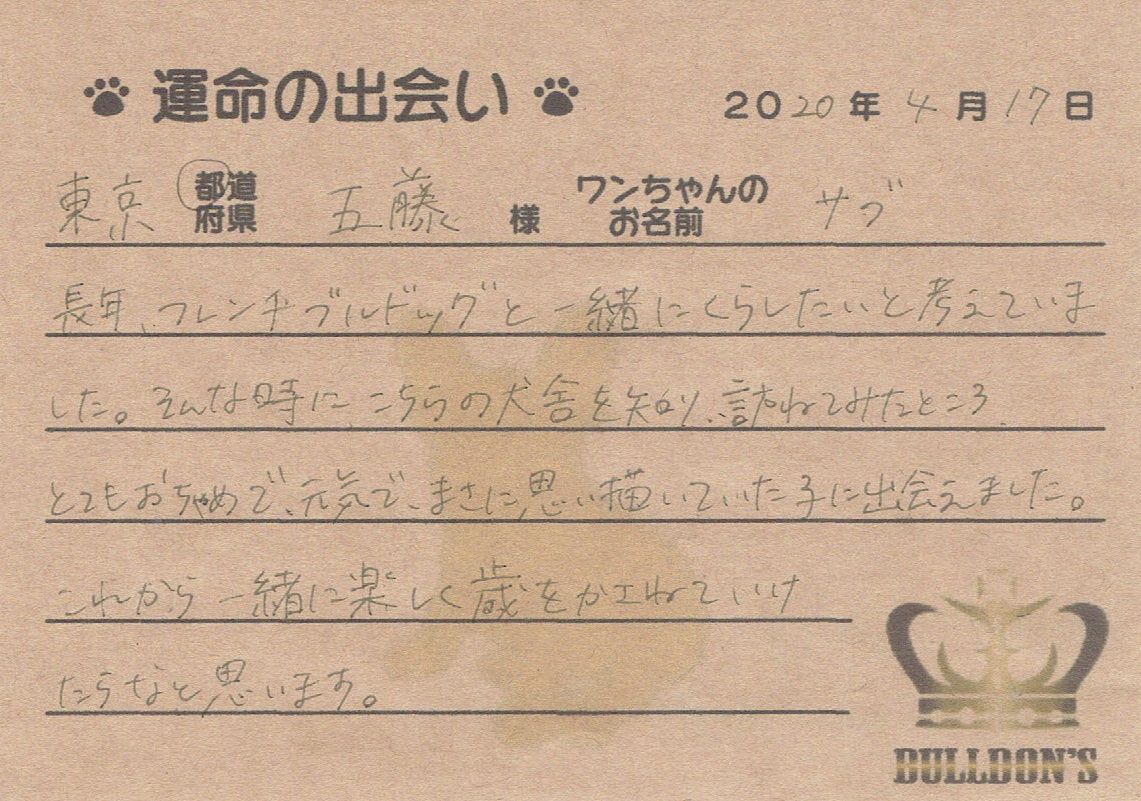 運命の出会い 2020年4月17日
東京 都道府県 五藤 様 ワンちゃんのお名前 サブ
長年、フレンチブルドッグと一緒にくらしたいと考えていま
した。そんな時にこちらの犬舎を知り、訪ねてみたところ
とてもおちゃめで、元気で、まさに思い描いていた子に出会えました。
これから一緒に楽しく歳をかさねていけ
たらなと思います。
BULLDON'S